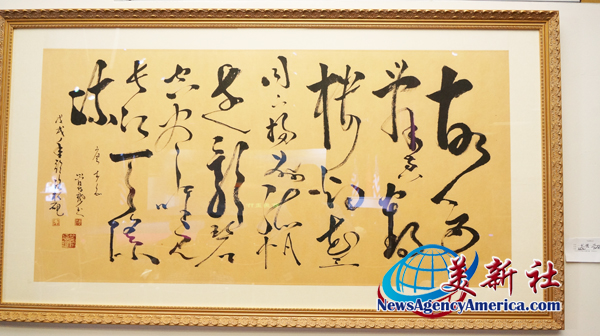 故人西
辞黄鹤
楼烟花三
月下揚州孤帆
远影碧
空尽唯见
长江天际
流
戊戌年
美新社
NewsAgencyAmerica.com